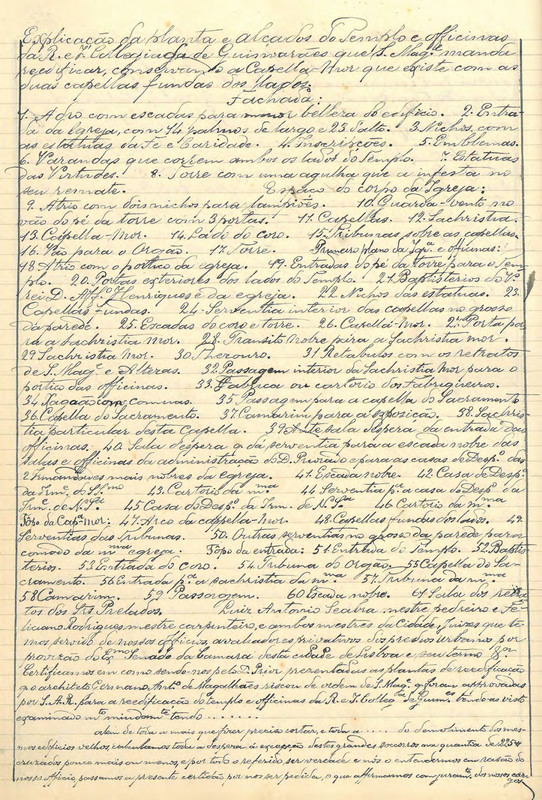 Explicação da planta e alçados do Templo e officinas
da R. e In. Collegiada de Guimarães que S. Magde manda
reedificar, conservando a Capella-Mor que existe com as
duas capellas fundas dos lados.
Fachada:
1. Adro com escadas para menor belleza do edificio. 2. Entra-
da da Egreja, com 14 palmos de largo e 23 d'alto. 3. Nichos, com
as estatuas da Fé e Caridade. 4. Inscripções. 5. Emblemas.
6. Varandas que correm ambos os lados do Templo. 7. Estatuas
das Virtudes. 8. Torre com uma agulha que a infesta no
seu remate. Espaço do corpo da Igreja:
9. Atrio com dois nichos para lampiões. 10. Guarda-vento no
vão do pé da torre com 3 portas. 11. Capellas. 12. Sachristia.
13. Capella-Mor. 14. Lado do coro. 15. Tribunas sobre as capellas.
16. Vão para o Orgão. 17. Torre. Primeiro plano da Igr.ª e officinas:
18. Atrio com o portico da igreja. 19. Entradas do pé da torre para o tem-
plo. 20. Portas exteriores dos lados do Templo. 21. Baptisterios do
rei D. Aff. Henriques e da egreja. 22. Nichos das estatuas. 23.
Capellas fundas. 24. Serventia interior das capellas no grosso
da parede. 25. Escadas do coro e torre. 26. Capella-Mor. 27. Porta pa-
ra a sachristia mor. 28. Transito nobre para a Sachristia mor.
29. Sachristia Mor. 30. Thezouro. 31. Retabulos com os retratos
de S. Mag.e e Altezas. 32. Passagem interior da Sachristia Mor para o
portico das officinas. 33. Fabrica ou cartorio dos Fabriqueiros.
34. Sagoão commum. 35. Passagem para a capella do Sacramento
36. Capella do Sacramento. 37. Camarim para a exposição. 38. Sachris-
tia particular desta Capella. 39. Ante sala d'espera da entrada das
officinas. 40. Sala d'espera q dá serventia para a escada nobre das
salas e officinas da administração do D. Priorado e para as casas de Desp.º das
2 Irmandades mais nobres da egreja. 41. Escada nobre. 42. Casa de Desp.º
da Irm. do S.mo 43. Cartorio da m.ma 44. Serventia p.ª a casa do Desp.º da
Irm. de N. Sr.ª 45. Casa do Desp.º da Irm. de N. Sr.ª 46. Cartorio da m.ma
Topo da Cap. Mor: 47. Arco da capella-Mor. 48. Capellas fundas dos lados. 49.
Serventias das tribunas. 50. Outras serventias no grosso da parede para os
commodo da m.ma egreja. Topo da entrada: 51. Entrada do templo. 52. Baptis-
terios. 53. Entrada do coro. 54. Tribuna do orgão. 55. Capella do Sa-
cramento. 56. Entrada p.ª a sachristia da m.ma 57. Tribuna da m.ma
58. Camarim. 59. Passagem. 60. Escada nobre. 61. Salla dos retra-
tos dos Srs Prelados. Luiz Antonio Seabra, mestre pedreiro e Fe-
liciano Rodrigues, mestre carpinteiro, e ambos mestres da Cidade, Juizes que te-
mos servido de nossos officios, avaliadores privativos dos predios urbanos por
provizão do Ex.mo Senado da Camara desta cidade de Lisboa e seu termo
Certificamos em como sendo-nos pelo D. Prior prezentadas as plantas da reedificação
q o architeto Germano Ant.º de Magalhães riscou de ordem de S. Mag.e q foram approvadas
por S. A. R. para a reedificação do templo e officinas da R. e I. Colleg.da de Guim.es tendo as visto
examinado m.to miudam.te tendo ......
alem de toda a mais que fizer preciso cortar, e toda a .... do demolimento dos mes-
mos edificios velhos, calculamos toda a despeza á excepção destes grandes soccorros na quantia de 225
cruzados pouco mais ou menos, e por todo o referido ser verdade e nós o entendermos em razão de
nossos officios, passamos a presente certidão, por nos ser pedida, o que affirmamos com juram.to dos nossos car-
gos